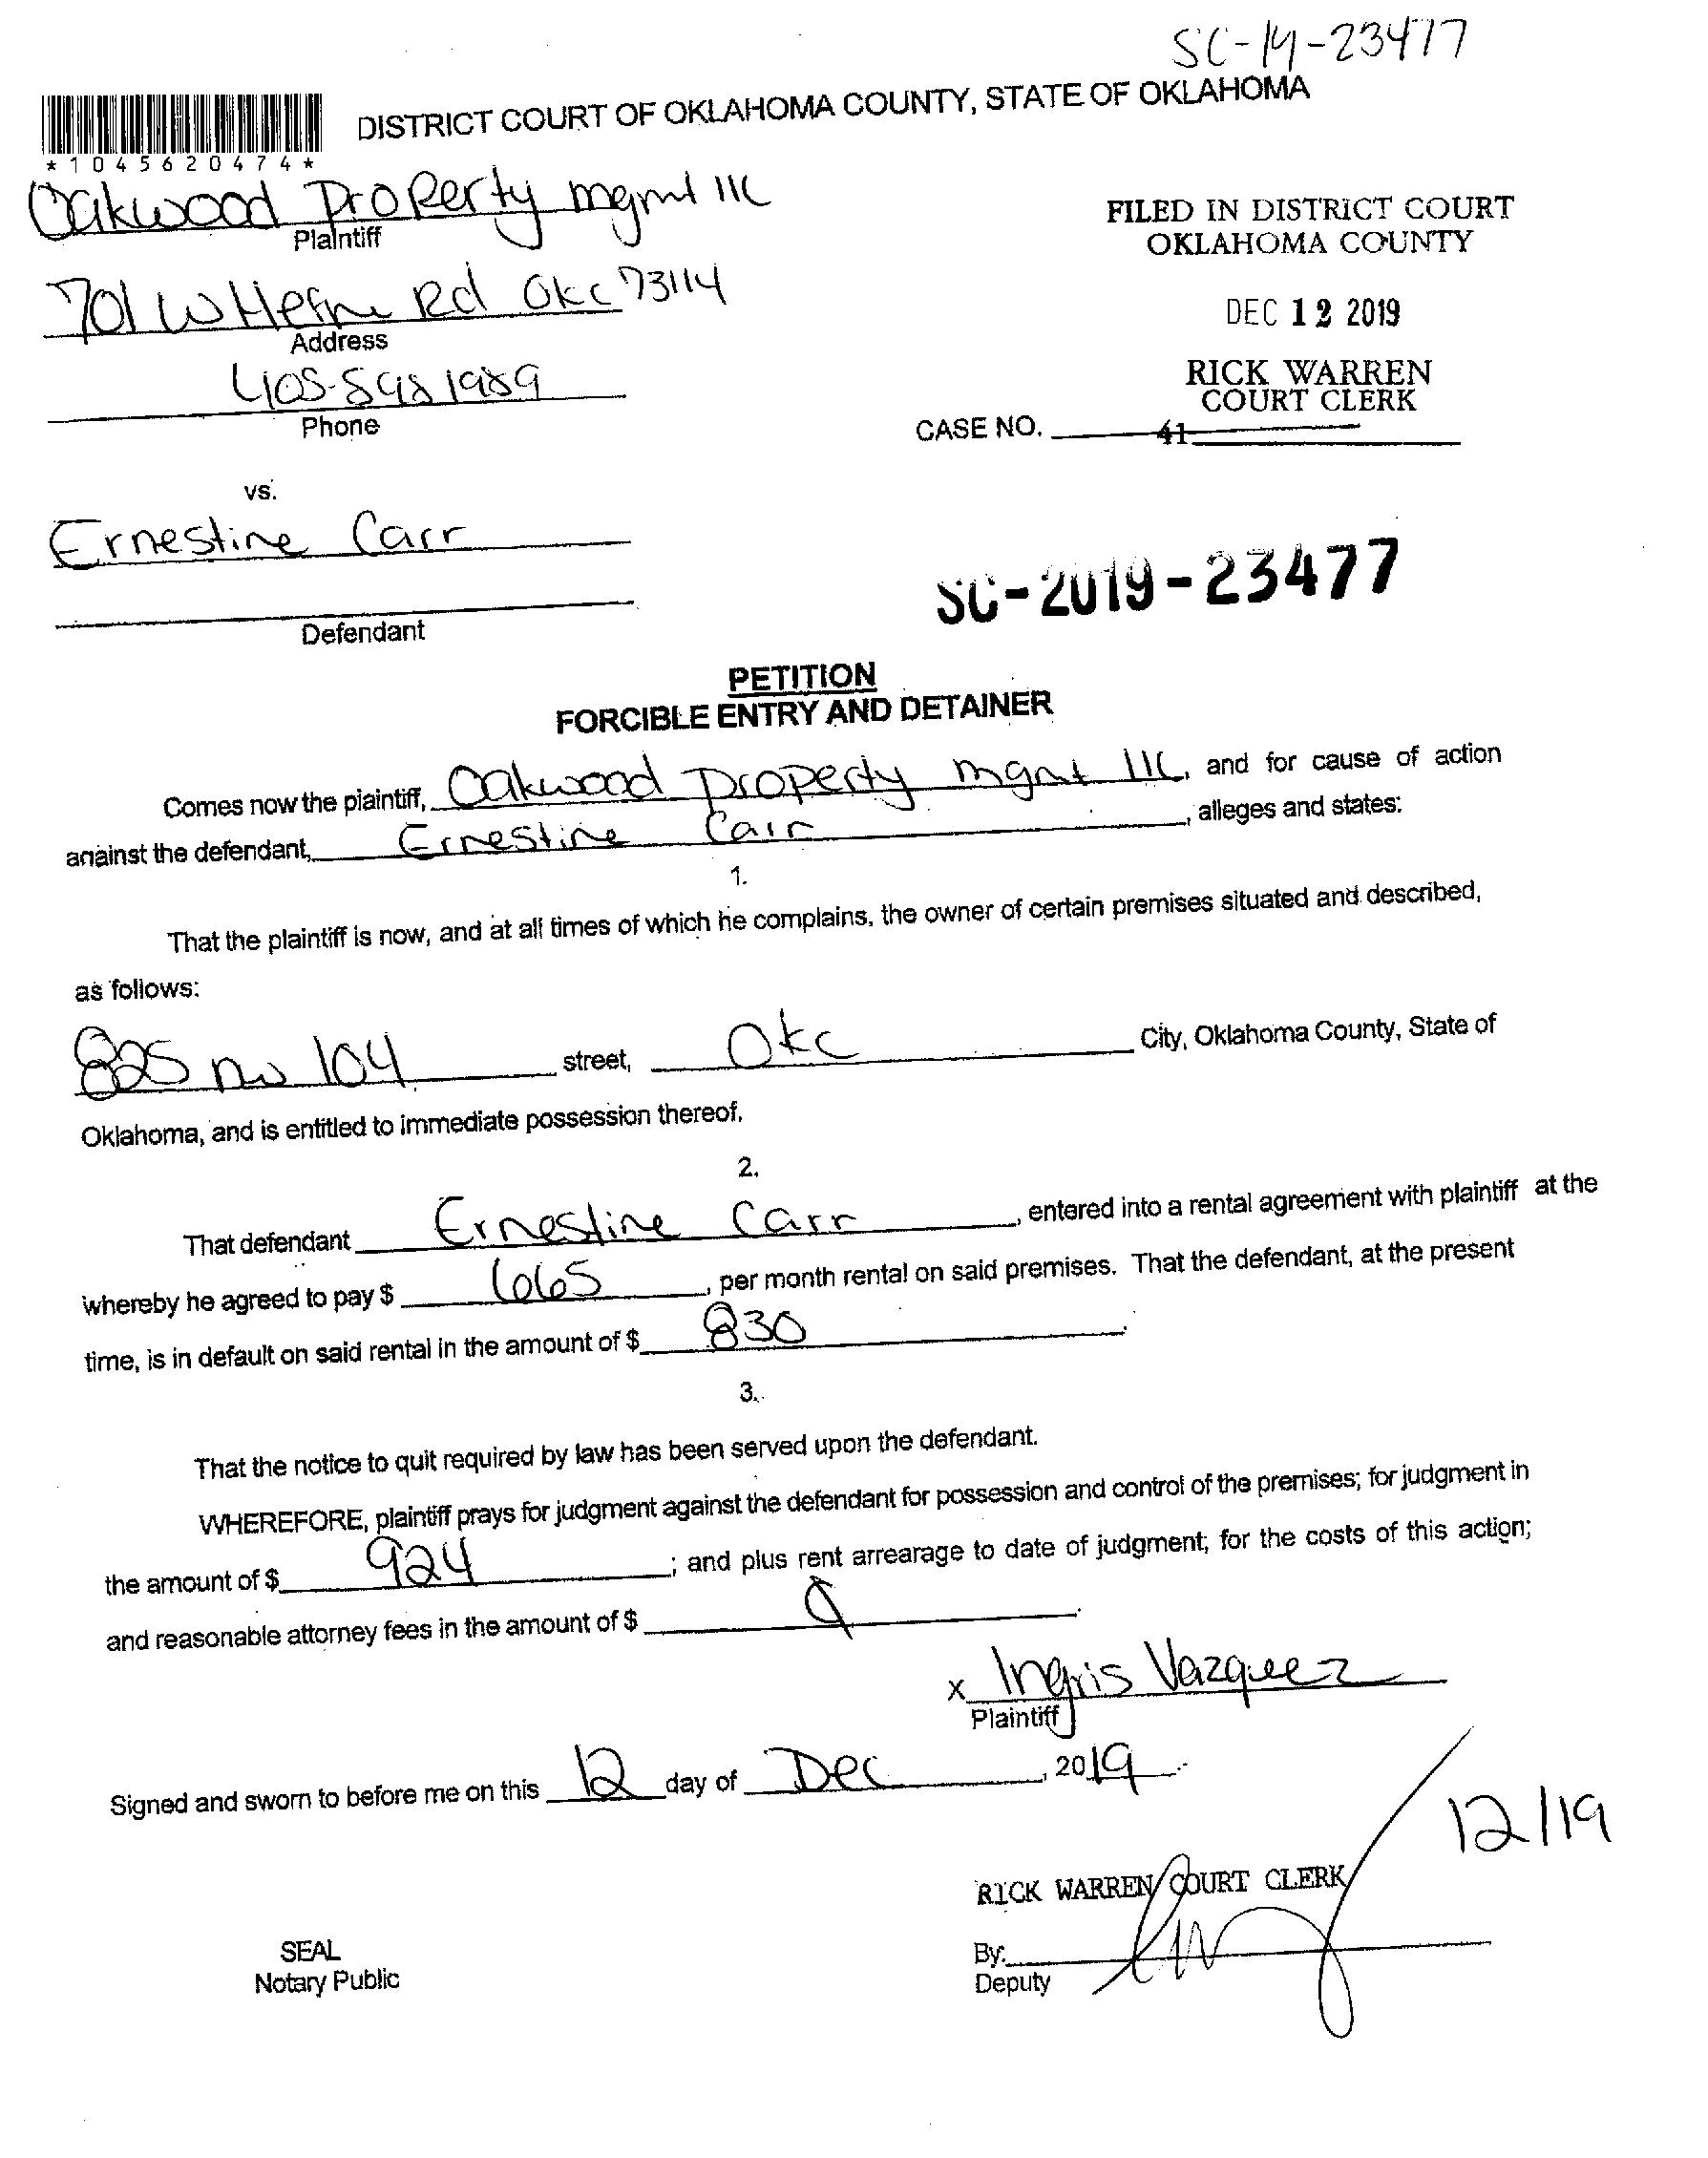 SC-19-23477
DISTRICT COURT OF OKLAHOMA COUNTY, STATE OF OKLAHOMA
*1045620474*
Oakwood Property mgmt llc
Plaintiff
FILED IN DISTRICT COURT
OKLAHOMA COUNTY
701 W Hefne Rd Okc 73114
Address
DEC 12 2019
RICK WARREN
COURT CLERK
405-598 1989
Phone
CASE NO. 41
vs.
Ernestine Carr
Defendant
SC-2019-23477
PETITION
FORCIBLE ENTRY AND DETAINER
Comes now the plaintiff, Oakwood Property mgmt llc, and for cause of action
against the defendant, Ernestine Carr, alleges and states:
1.
That the plaintiff is now, and at all times of which he complains, the owner of certain premises situated and described,
as follows:
825 nw 104 street, Okc City, Oklahoma County, State of
Oklahoma, and is entitled to immediate possession thereof.
2.
That defendant Ernestine Carr, entered into a rental agreement with plaintiff at the
whereby he agreed to pay $ 665, per month rental on said premises. That the defendant, at the present
time, is in default on said rental in the amount of $ 830.
3.
That the notice to quit required by law has been served upon the defendant.
WHEREFORE, plaintiff prays for judgment against the defendant for possession and control of the premises; for judgment in
the amount of $ 924; and plus rent arrearage to date of judgment; for the costs of this action;
and reasonable attorney fees in the amount of $
x Ingris Vazquez
Plaintiff
Signed and sworn to before me on this 12 day of Dec, 2019
12/19
RICK WARREN COURT CLERK
SEAL
Notary Public
By:
Deputy